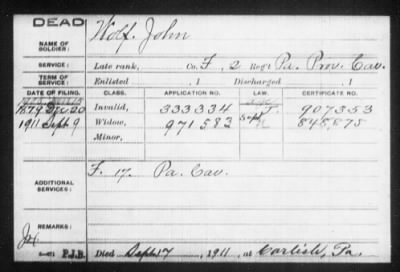 DEAD
NAME OF SOLDIER: Wolf. John
SERVICE: Late rank, Co. F, 2 Reg't Pa. Prov. Cav.
TERM OF SERVICE: Enlisted , 1 Discharged , 1
DATE OF FILING. CLASS. APPLICATION NO. LAW. CERTIFICATE NO.
1879 Dec 20 Invalid, 333334 907353
1911 Sept 9 Widow, 971583 848875
Minor,
ADDITIONAL SERVICES: F. 17. Pa. Cav.
REMARKS:
P.J.B. Died Sept 7, 1911, at Carlisle, Pa.